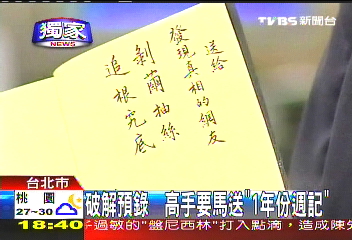 獨家
NEWS
TVBS 新聞台
送給
發現真相的網友
剝繭抽絲
追根究底
台北市
破解預錄 高手要馬送"1年份週記"
桃園
27~30
18:40
手過敏的"盤尼西林"打入點滴，造成陳失